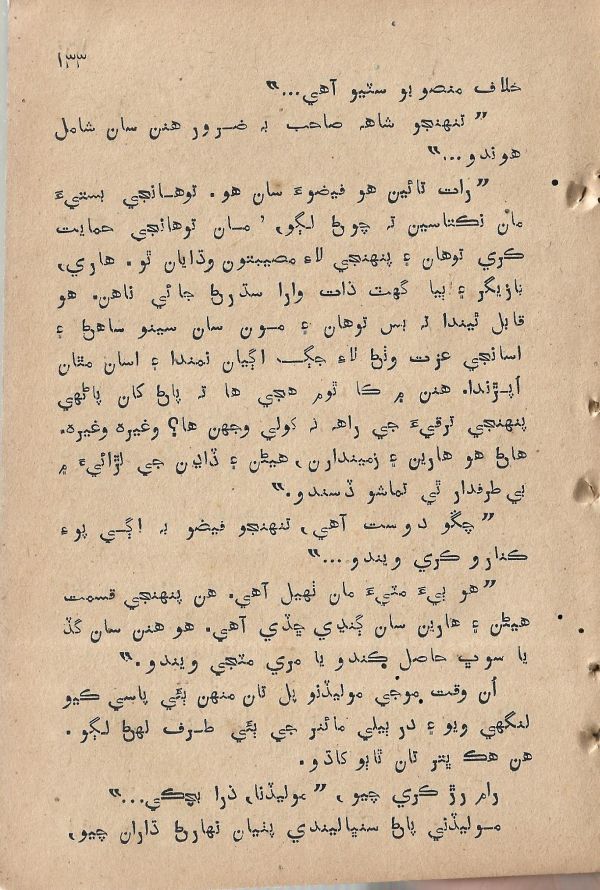 ۱۳۳
خلاف منصوبو سٽيو آهي..."
"تنهنجو شاهہ صاحب بہ ضرور هنن سان شامل
هوندو..."
"رات تائين هو فيضوءَ سان هو. توهانجي بستيءَ
مان نڪتاسين تہ چوڻ لڳو، 'مان توهانجي حمايت
ڪري توهان ۽ پنهنجي لاءِ مصيبتون وڌايان ٿو. هاري،
بازيگر ۽ ٻيا گهٽ ذات وارا سڌرڻ جائي ناهن. هو
قابل ٿيندا تہ بس توهان ۽ مون سان سينو ساهڻ ۽
اسانجي عزت وٺڻ لاءِ جڳ اڳيان نمندا ۽ اسان مٿان
اُپڙندا. هنن ۾ ڪا ٿوم هجي ها تہ پاڻ کان پاڻهي
پنهنجي ترقيءَ جي راهہ نہ کولي وجهن ها؟ وغيره وغيره.
هاڻ هو هارين ۽ زميندارن، هيڻن ۽ ڏاڍن جي لڙائيءَ ۾
بي طرفدار ٿي تماشو ڏسندو."
"چڱو دوست آهي، تنهنجو فيضو بہ اڳي پوءِ
ڪنارو ڪري ويندو..."
"هو ٻيءَ مٽيءَ مان ٺهيل آهي. هن پنهنجي قسمت
هيڻن ۽ هارين سان ڳنڍي ڇڏي آهي. هو هنن سان گڏ
يا سوڀ حاصل ڪندو يا مري مٽجي ويندو."
اُن وقت موجي موليڏنو پل تان منهن ٻئي پاسي ڪيو
لنگهي ويو ۽ در ٻيلي مائنر جي ٻئي طرف لهڻ لڳو.
هن هڪ پٿر تان ٿاٻو کاڌو.
رام رڙ ڪري چيو، "موليڏنا، ذرا بچڪي..."
موليڏني پاڻ سنڀاليندي پٺيان نهارڻ ڌاران چيو،